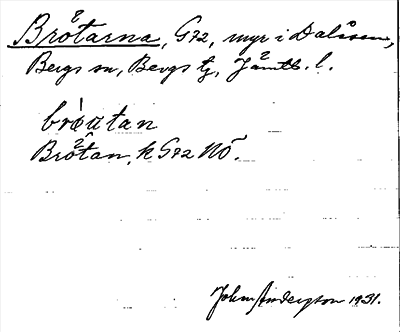 Brötarna, G72, myr i Dalåsen,
Bergs sn, Bergs tg, Jämtl. l.
brȯαtan
Brötan, k G72 NÖ.
John Anderson 1931.